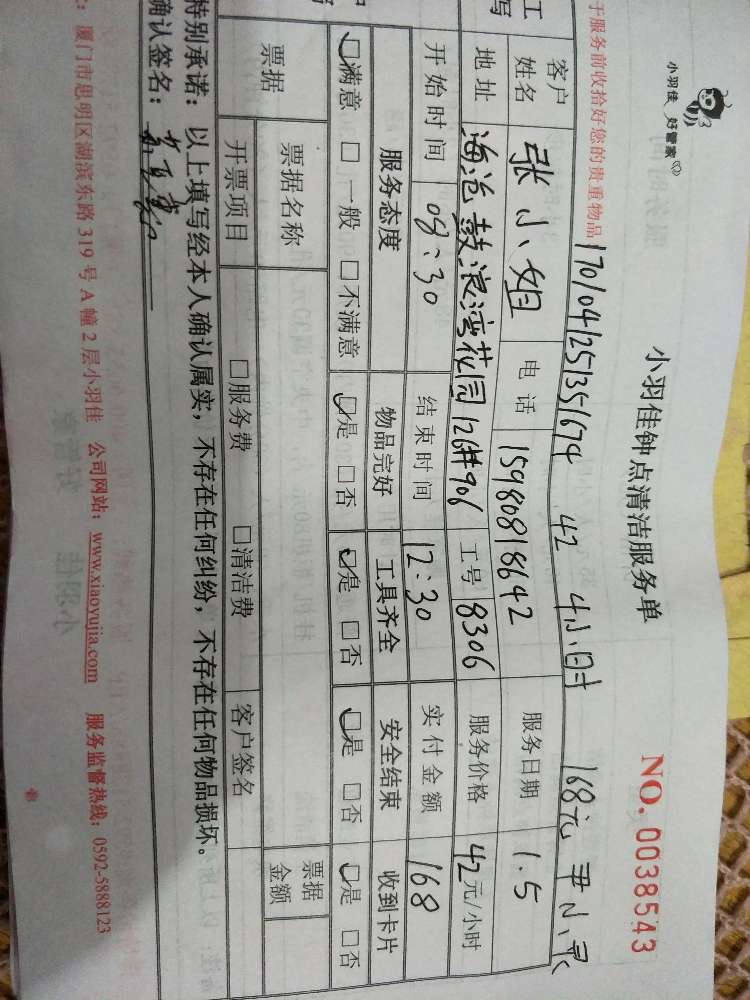 小羽佳 好管家
小羽佳钟点清洁服务单
NO. 0038543
于服务前收拾好您的贵重物品 170104125351674 42 4小时 168元
客户姓名 张小姐 电话 15980818642 服务日期 1.5
地址 海沧鼓浪湾花园126#906 工号 8306 服务价格 42元/小时
开始时间 08:30 结束时间 12:30 实付金额 168
服务态度 物品完好 工具齐全 安全结束 收到卡片
☑满意 □一般 □不满意 ☑是 □否 ☑是 □否 ☑是 □否 ☑是 □否
票据 票据名称 票据金额
开票项目 □服务费 □清洁费 客户签名
特别承诺：以上填写经本人确认属实，不存在任何纠纷，不存在任何物品损坏。
确认签名：
厦门市思明区湖滨东路 319 号 A 幢 2 层小羽佳 公司网站：www.xiaoyujia.com 服务监督热线：0592-5888123